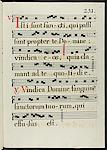 231.
Isti sunt sancti, qui passi
sunt propter te Domine
vindica e os, quia cla
mant ad te quotidi e.
V. Vindica Domine sanguinem
sanctorum tuorum, qui
effusus est.